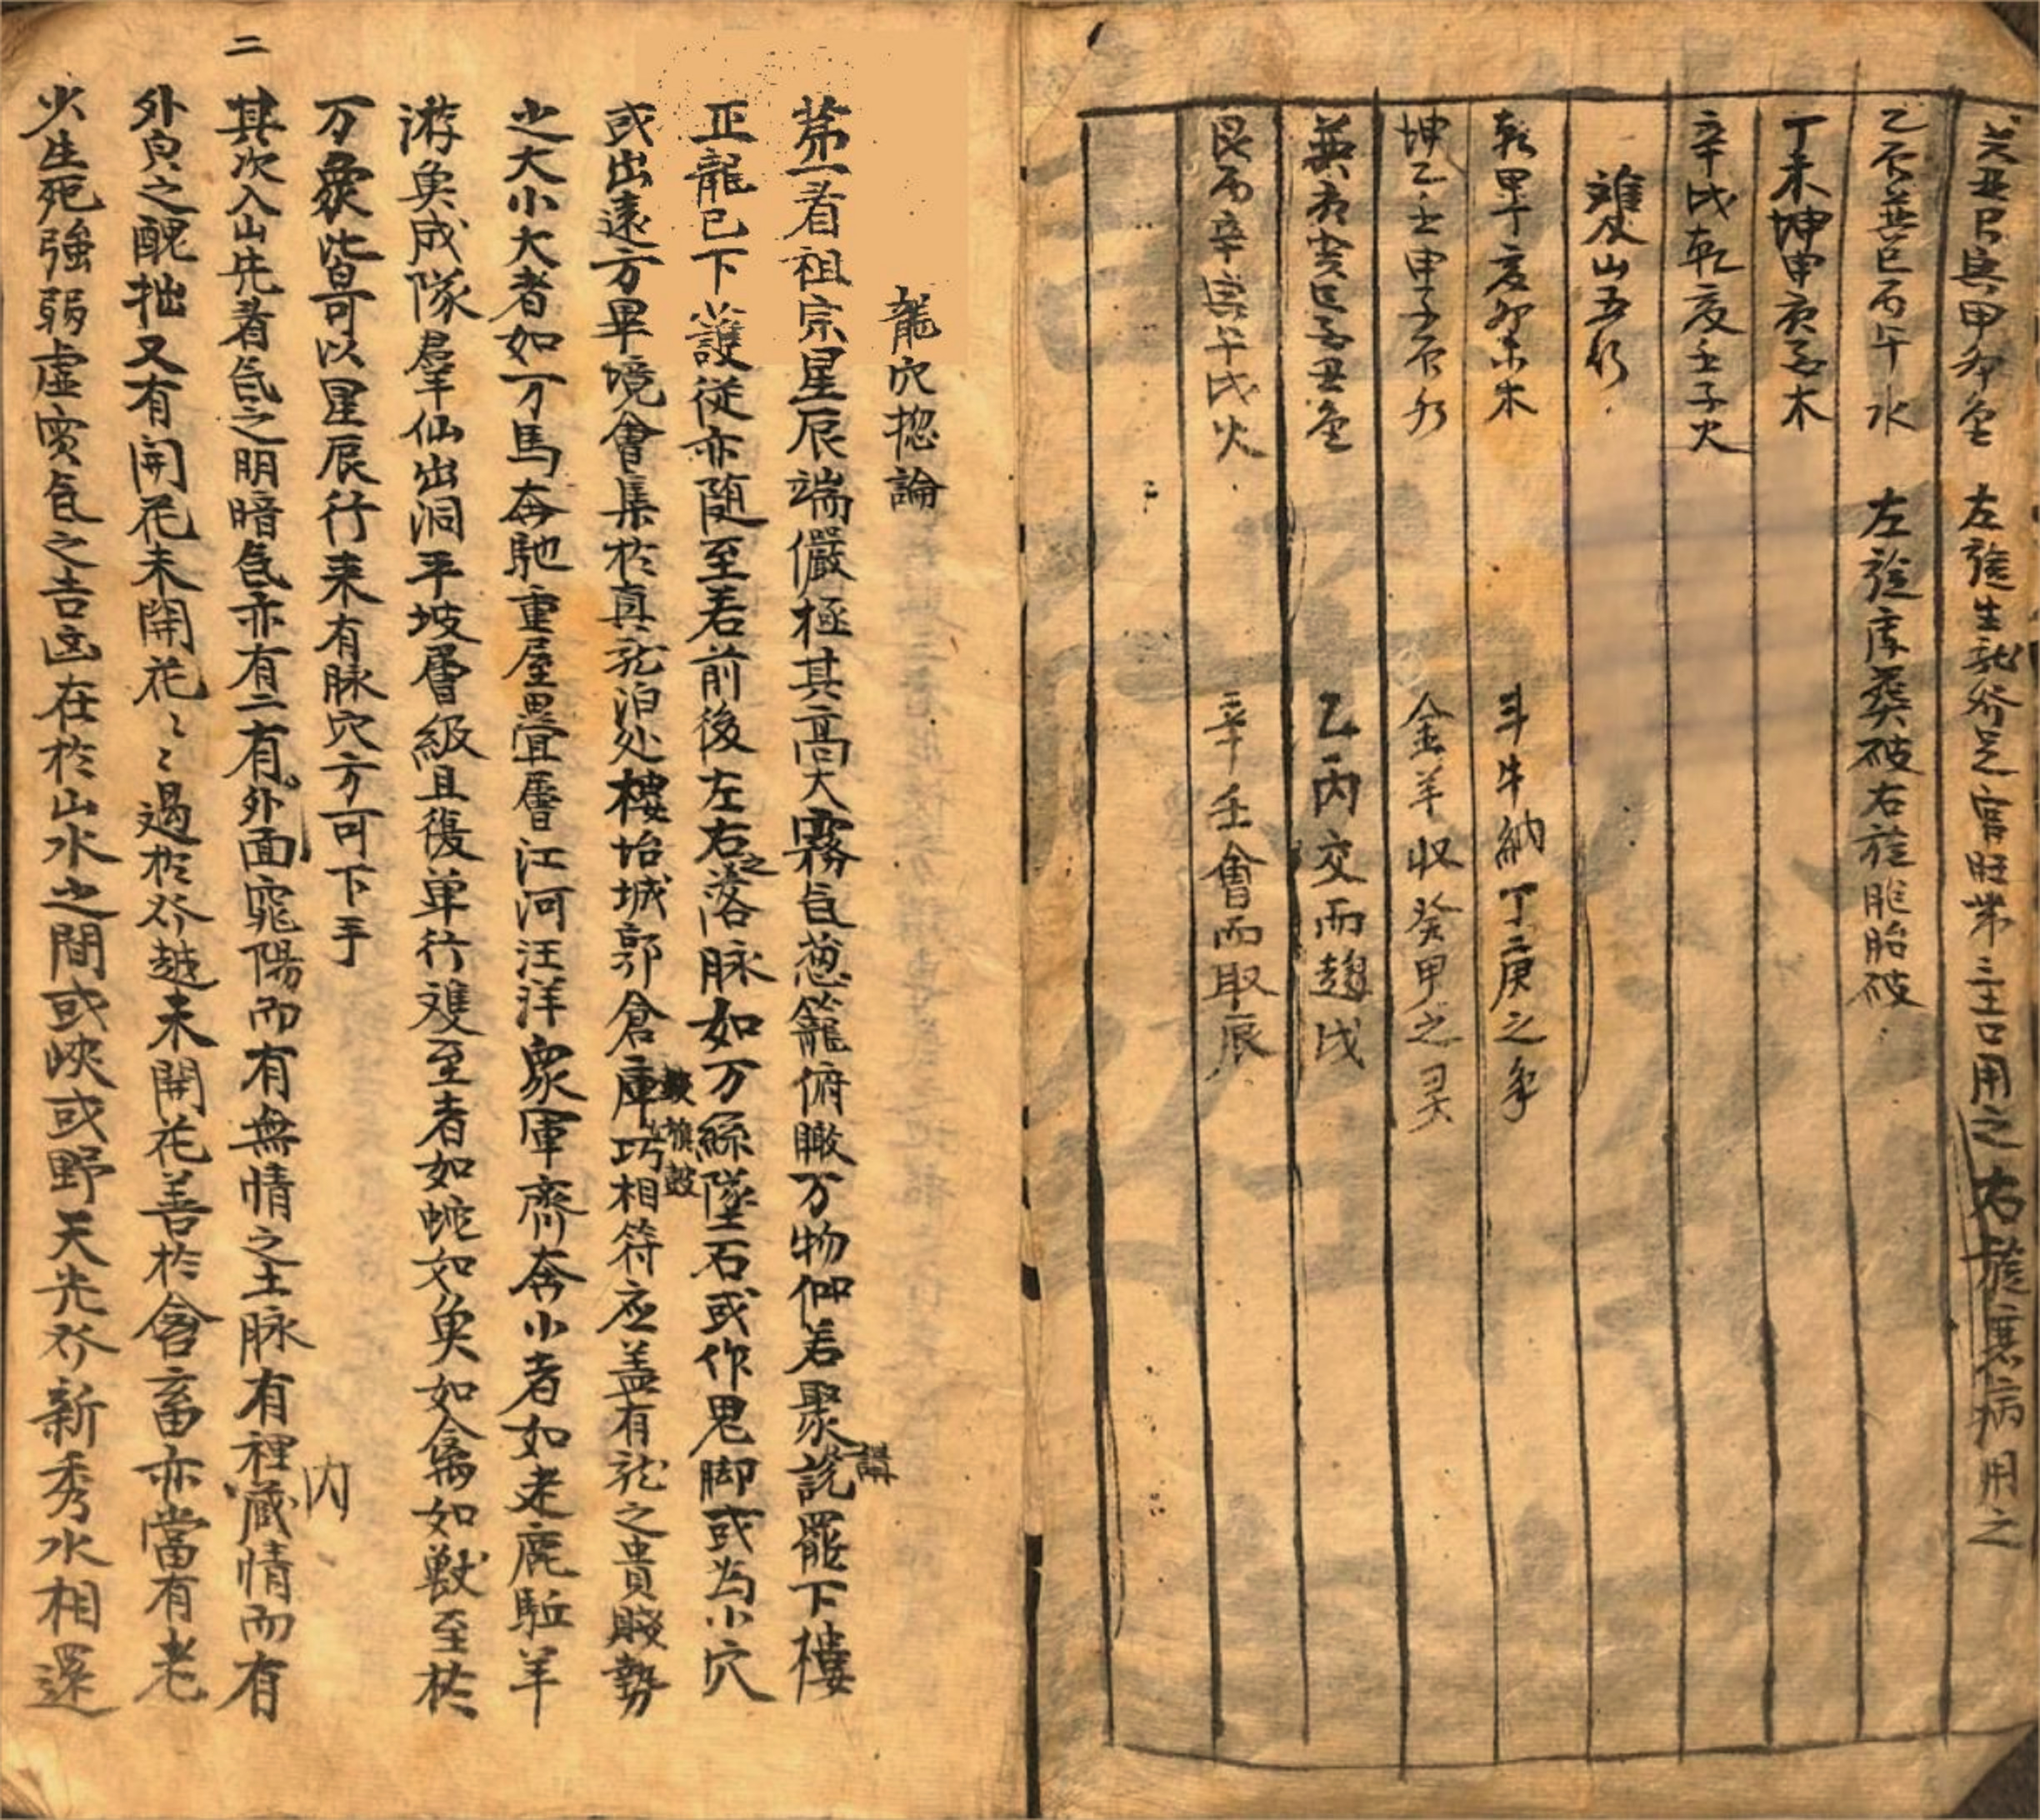 癸丑艮寅甲卯金 左旋生龙行足官旺第三吉口用之右旋衰病用之
乙辰巽巳丙午水 左旋库葬破右旋胎破
丁未坤申庚酉木
辛戌乾亥壬子火
双山五行
乾甲丁亥卯未木 斗牛納丁庚之气
坤乙壬申子辰水 金羊收癸甲之灵
巽庚癸巳酉丑金 乙丙交而趨戌
艮丙辛寅午戌火 辛壬會而取辰
龍穴揔論
苐一看祖宗星辰端儼極其高大霧气葱籠俯瞰万物仰若聚説講罷下樓
正龍已下護從亦随至若前後左右之落脉如万絲墜石或作鬼脚或為小穴
或出遠方畢境會集於真龙泊处楼抬城郭倉庫旗鼓巧相符应盖有龙之貴賤勢
之大小大者如万馬奔馳重屋疊層江河汪洋衆軍齊奔小者如走鹿駈羊
游魚成隊羣仙出洞平坡層級且復单行双至者如蛇如魚如禽如獸至於
万衆皆可以星辰行来有脉穴方可下手
二
其次入山先看气之明暗气亦有二有外面窕陽而有無情之土脉有裡内藏情而有
外貞之醜拙又有開花未開花〻〻過於行越未開花善於含畜亦當有老
少生死強弱虚实气之吉凶在於山水之間或峽或野天光行新秀水相還